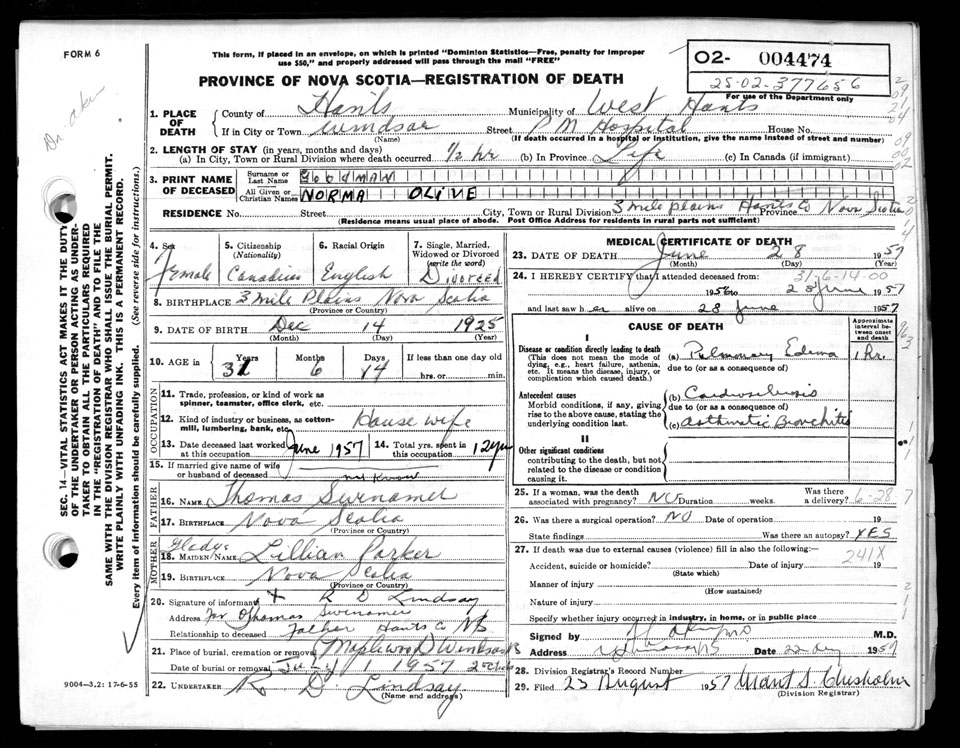 FORM 6
This form, if placed in an envelope, on which is printed "Dominion Statistics—Free, penalty for improper
use $50," and properly addressed will pass through the mail "FREE"
02- 004474
25-02-377656
For use of the Department only
PROVINCE OF NOVA SCOTIA—REGISTRATION OF DEATH
SEC. 14—VITAL STATISTICS ACT MAKES IT THE DUTY
OF THE UNDERTAKER OR PERSON ACTING AS UNDER-
TAKER TO OBTAIN ALL THE PARTICULARS REQUIRED
IN THE "REGISTRATION OF DEATH" AND TO FILE THE
SAME WITH THE DIVISION REGISTRAR WHO SHALL ISSUE THE BURIAL PERMIT.
WRITE PLAINLY WITH UNFADING INK. THIS IS A PERMANENT RECORD.
Every item of information should be carefully supplied. (See reverse side for instructions.)
1. PLACE OF DEATH County of Hants Municipality of West Hants
If in City or Town Windsor Street P M Hospital House No.
(Name) (If death occurred in a hospital or institution, give the name instead of street and number)
2. LENGTH OF STAY (in years, months and days)
(a) In City, Town or Rural Division where death occurred 1/2 hr (b) In Province Life (c) In Canada (if immigrant)
3. PRINT NAME OF DECEASED Surname or Last Name
All Given or Christian Names NORMA OLIVE
RESIDENCE No. Street City, Town or Rural Division 3 mile plains Hants Co Province Nova Scotia
(Residence means usual place of abode. Post Office Address for residents in rural parts not sufficient)
4. Sex Female
5. Citizenship (Nationality) Canadian
6. Racial Origin English
7. Single, Married, Widowed or Divorced (write the word) Divorced
8. BIRTHPLACE 3 mile Plains Nova Scotia
(Province or Country)
9. DATE OF BIRTH Dec 14 1925
(Month) (Day) (Year)
10. AGE in Years 31 Months 6 Days 14 If less than one day old
hrs. or min.
OCCUPATION
11. Trade, profession, or kind of work as spinner, teamster, office clerk, etc.
12. Kind of industry or business, as cotton-mill, lumbering, bank, etc. House wife
13. Date deceased last worked at this occupation June 1957 14. Total yrs. spent in this occupation 12 yrs
15. If married give name of wife or husband of deceased not Known
FATHER
16. NAME Thomas Swinamer
17. BIRTHPLACE Nova Scotia
(Province or Country)
MOTHER
18. MAIDEN NAME Gladys Lillian Parker
19. BIRTHPLACE Nova Scotia
(Province or Country)
20. Signature of informant X R D Lindsay
Address For Thomas Swinamer
Relationship to deceased father Hants Co NS
21. Place of burial, cremation or removal Maplewood
Date of burial or removal July 1 1957
22. UNDERTAKER R D Lindsay
(Name and address)
9004—3.2: 17-6-55
MEDICAL CERTIFICATE OF DEATH
23. DATE OF DEATH June 28 1957
(Month) (Day) (Year)
24. I HEREBY CERTIFY that I attended deceased from: 31-6-14-00
1956 to 28 June 1957
and last saw h er alive on 28 June 1957
CAUSE OF DEATH
Approximate interval between onset and death
I
Disease or condition directly leading to death
(This does not mean the mode of dying, e.g., heart failure, asthenia, etc. It means the disease, injury, or complication which caused death.)
(a) Pulmonary Edema 1 hr.
due to (or as a consequence of)
Antecedent causes
Morbid conditions, if any, giving rise to the above cause, stating the underlying condition last.
(b)
due to (or as a consequence of)
(c) Asthmatic Bronchitis
II
Other significant conditions
contributing to the death, but not related to the disease or condition causing it.
25. If a woman, was the death associated with pregnancy? NO Duration weeks. Was there a delivery? 6-28-7
26. Was there a surgical operation? NO Date of operation 19
State findings Was there an autopsy? YES
27. If death was due to external causes (violence) fill in also the following:—
241X
Accident, suicide or homicide? Date of injury 19
(State which)
Manner of injury
(How sustained)
Nature of injury
Specify whether injury occurred in industry, in home, or in public place
Signed by M.D.
Address Date 1957
28. Division Registrar's Record Number
29. Filed 23 August 1957 Grant S. Chisholm
(Division Registrar)